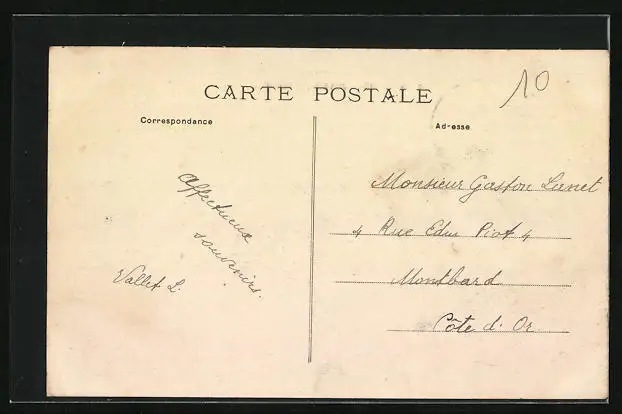 10
CARTE POSTALE
Correspondance
Affectueux
souvenirs.
Vallet L.
Adresse
Monsieur Gaston Lanet
4 Rue Edm Piot 4
Montbard
Côte d'Or